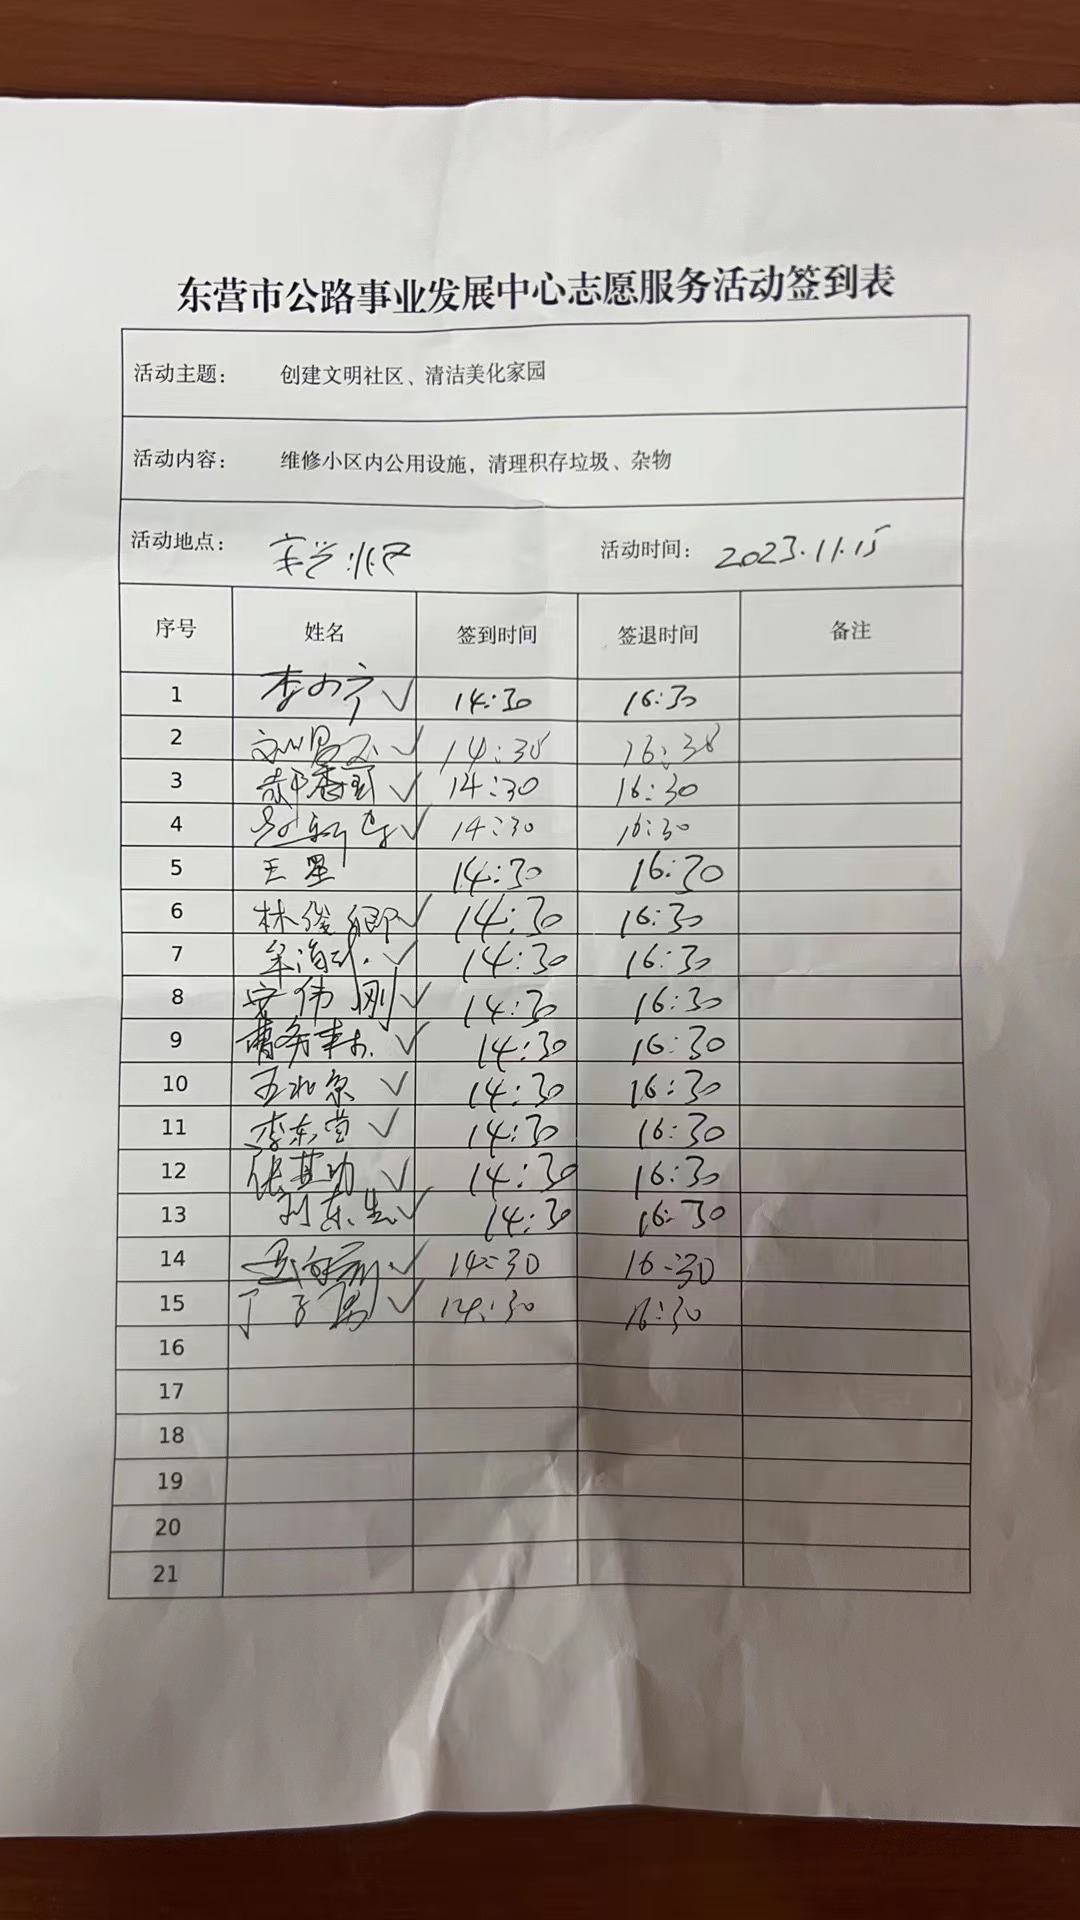 东营市公路事业发展中心志愿服务活动签到表
活动主题： 创建文明社区、清洁美化家园
活动内容： 维修小区内公用设施，清理积存垃圾、杂物
活动地点： 活动时间： 2023.11.15
序号 姓名 签到时间 签退时间 备注
1 ✓ 14:30 16:30
2 ✓ 14:30 16:30
3 ✓ 14:30 16:30
4 ✓ 14:30 16:30
5 王星 14:30 16:30
6 林俊卿 ✓ 14:30 16:30
7 ✓ 14:30 16:30
8 安伟刚 ✓ 14:30 16:30
9 ✓ 14:30 16:30
10 王北京 ✓ 14:30 16:30
11 李东营 ✓ 14:30 16:30
12 张其功 ✓ 14:30 16:30
13 刘东生 ✓ 14:30 16:30
14 ✓ 14:30 16:30
15 ✓ 14:30 16:30
16
17
18
19
20
21